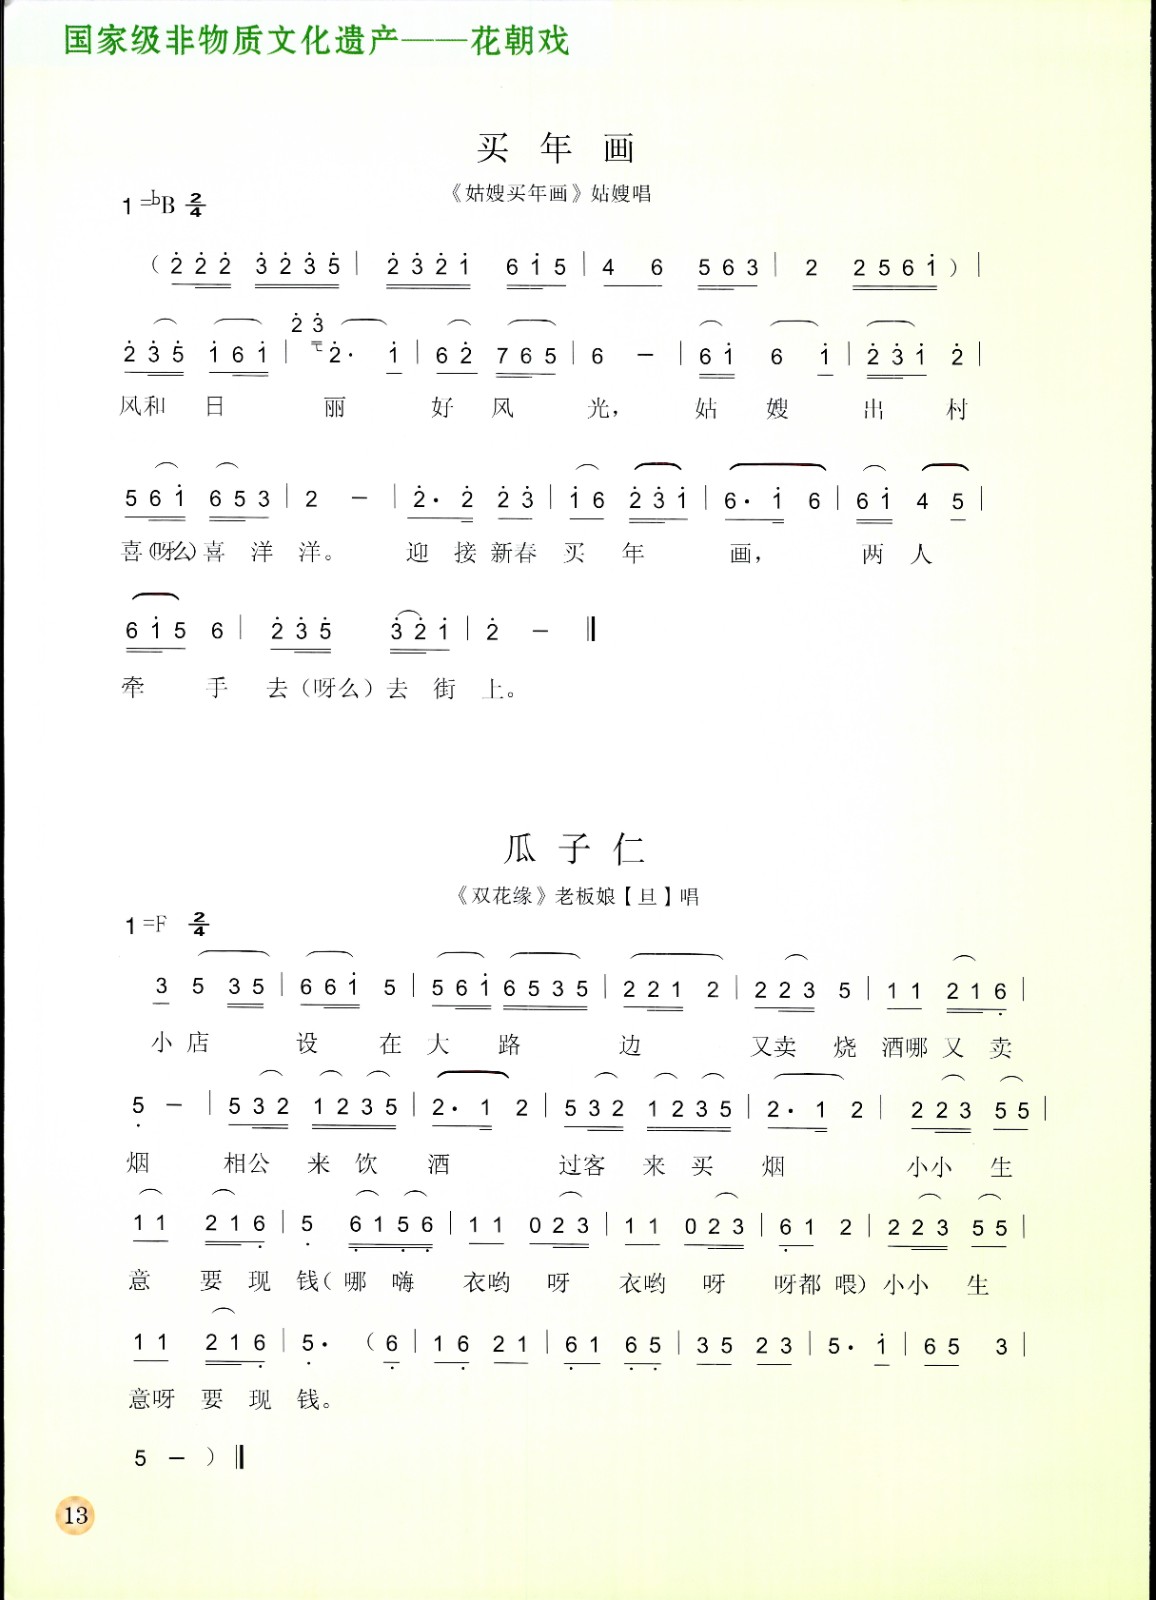 国家级非物质文化遗产——花朝戏
买年画
《姑嫂买年画》姑嫂唱
1=♭B 2/4
（2̇ 2̇ 2̇ 3̇ 2̇ 3̇ 5̇ | 2̇ 3̇ 2̇ 1̇ 6 1̇ 5 | 4 6 5 6 3 | 2 2 5 6 1̇）|
2̇ 3̇
2̇ 3̇ 5̇ 1̇ 6 1̇ | 2̇· 1̇ | 6 2̇ 7 6 5 | 6 － | 6 1̇ 6 1̇ | 2̇ 3̇ 1̇ 2̇ |
风和 日 丽 好 风 光， 姑 嫂 出 村
5 6 1̇ 6 5 3 | 2 － | 2̇· 2̇ 2̇ 3̇ | 1̇ 6 2̇ 3̇ 1̇ | 6· 1̇ 6 | 6 1̇ 4 5 |
喜（呀么）喜 洋 洋。 迎 接 新春 买 年 画， 两 人
6 1̇ 5 6 | 2̇ 3̇ 5̇ 3̇ 2̇ 1̇ | 2̇ － ‖
牵 手 去（呀么）去 街 上。
瓜子仁
《双花缘》老板娘【旦】唱
1=F 2/4
3 5 3 5 | 6 6 1̇ 5 | 5 6 1̇ 6 5 3 5 | 2 2 1 2 | 2 2 3 5 | 1 1 2 1 6̣ |
小 店 设 在 大 路 边 又卖 烧 酒哪 又 卖
5̣ － | 5 3 2 1 2 3 5 | 2· 1 2 | 5 3 2 1 2 3 5 | 2· 1 2 | 2 2 3 5 5 |
烟 相公 来 饮 酒 过客 来 买 烟 小小 生
1 1 2 1 6̣ | 5̣ 6̣ 1 5̣ 6̣ | 1 1 0 2 3 | 1 1 0 2 3 | 6̣ 1 2 | 2 2 3 5 5 |
意 要 现 钱（哪 嗨 衣哟 呀 衣哟 呀 呀都 喂）小小 生
1 1 2 1 6̣ | 5̣· （6̣ | 1 6̣ 2 1 | 6̣ 1 6̣ 5̣ | 3 5 2 3 | 5· 1̇ | 6 5 3 |
意呀 要 现 钱。
5 － ）‖
13